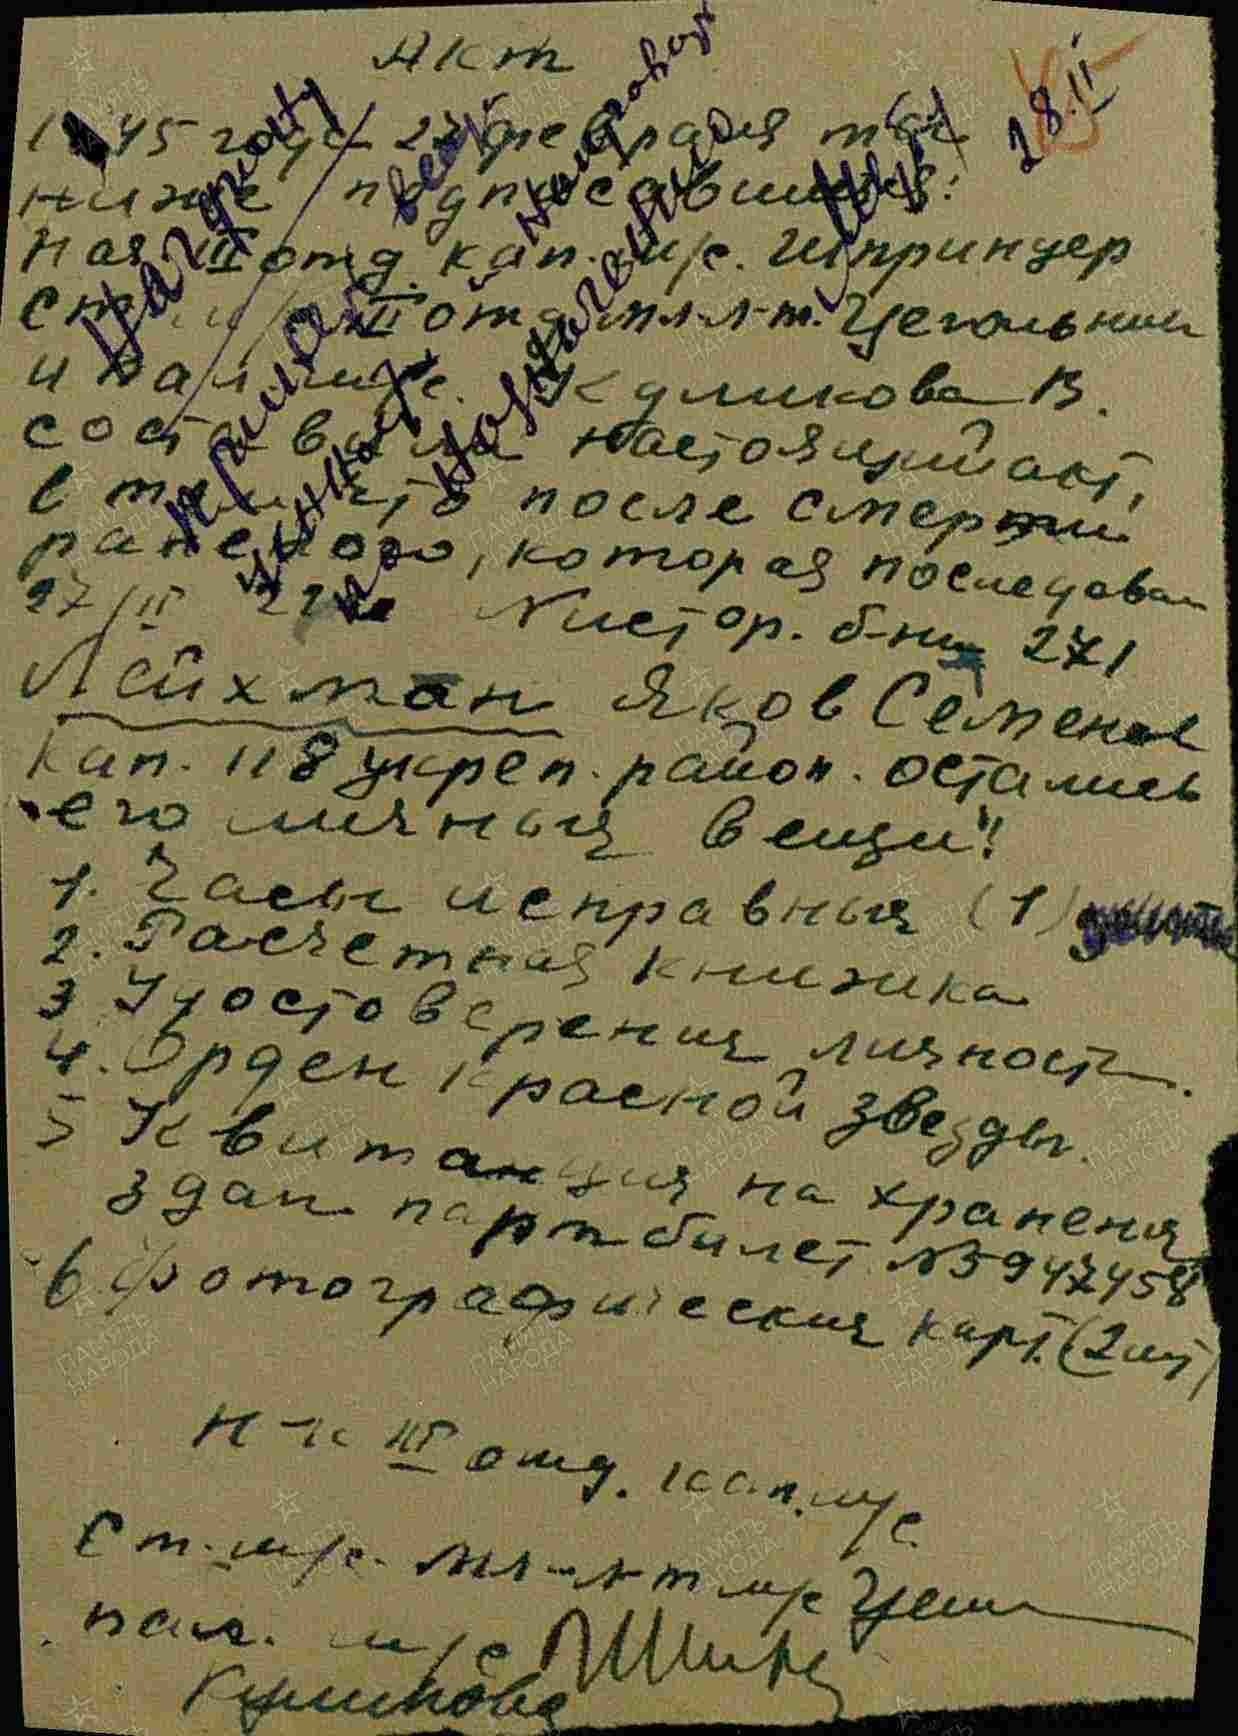 Акт
1945 года 27 февраля мы
ниже подписавшиеся:
Нач III отд. кап. м/с. Шпринцер
ст. м/с II отд мл. л-т. Цегольник
и пал. м/с. Куликова В.
составили настоящий акт,
в том что после смерти
раненого, которая последовал
27/II № истор. б-ни 271
Лейхман Яков Семенов
Кап. 118 укреп. район. остались
его личныя вещи:
1. Часы исправныя (1)
2. Расчетная книжка
3 Удостоверения личност.
4. Орден Красной звезды.
5 Квитанция на хранения
здан партбилет №5947458
6 Фотографическия карт. (2 шт)
Н-к III отд. кап. м/с
Ст. м/с. мл-л-т м/с
пал. м/с
Куликова
Награду
принял
28.II